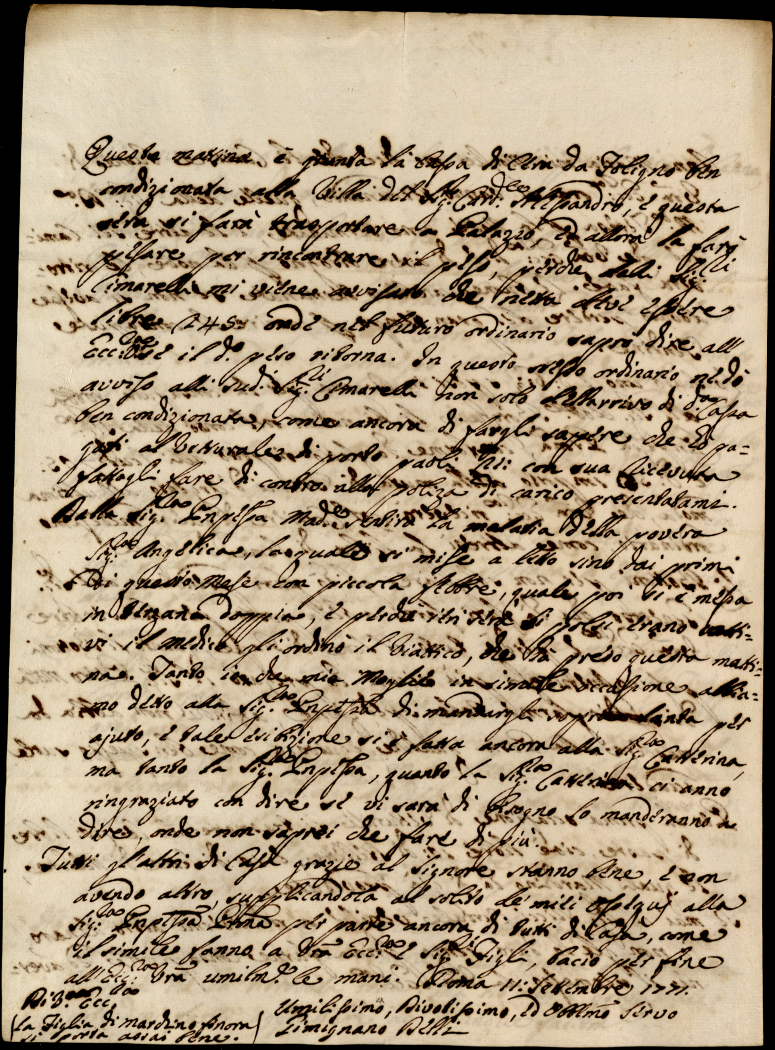 Questa mattina è giunta la Cassa di Cera da Foligno ben
condizionata alla Villa del Sig. Card. Alessandro, e questa
sera si farà trasportare a Palazzo, ed allora la farò
pesare per rincontrare il peso, perche dalli Sig.ri
Cimarelli mi viene avvisato che netta deve essere
libre 245: onde nel futuro ordinario saprò dire all'
Ecc. se il d.o peso ritorna. In questo stesso ordinario ne dò
avviso alli sud. Sig.ri Cimarelli non solo dell'arrivo di d.a Cassa
ben condizionata, come ancora di fargli sapere che ò pa=
gati al Vetturale di porto paoli con sua ricevuta
fattagli fare di contro alla poliza di carico presentatami.
Dalla Sig.ra Mad.e sentirà la malatia della povera
Sig.ra Angelica, la quale si mise a letto sino dai primi
di questo mese con piccola febbre, quale poi si è messa
in terzana doppia, e perche ieri sera i polsi erano catti=
vi il medico gli ordinò il Viatico, che hà preso questa matti=
na. Tanto io che mia Moglie in simile occasione abbia=
mo detto alla Sig.ra di mandargli Santa per
ajuto, e tale esibizione si è fatta ancora alla Sig.ra Catterina,
ma tanto la Sig.ra, quanto la Sig.ra Catterina ci anno
ringraziato con dire se vi sarà di bisogno lo manderanno a
dire, onde non saprei che fare di più.
Tutti gl'altri di Casa grazie al Signore stanno bene, e non
avendo altro, supplicandola al solito de miei ossequj alla
Sig.ra per parte ancora di tutti di Casa, come
il simile fanno a Vra Ecc.za e Sig.ri Figli, bacio per fine
all'Ecc.za Vra umilm.e le mani. Roma 11: Settembre 1771.
Di V.ra Ecc.za
(La Figlia di mardino finora
si porta assai bene.)
Umilissimo, Divotissimo, ed Obblmo Servo
Gimignano Belli